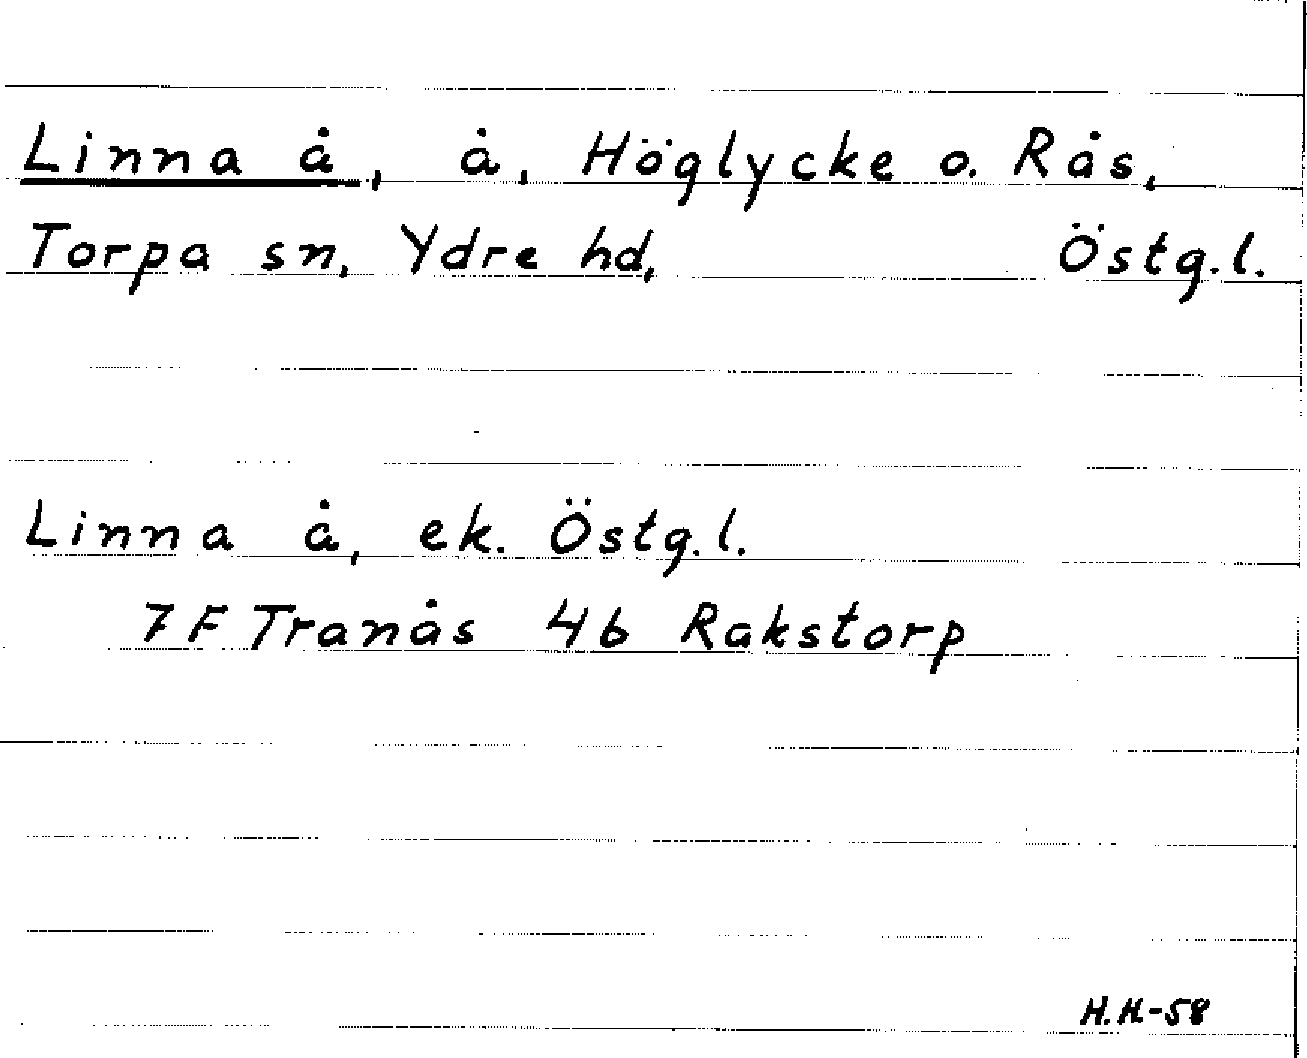 Linna å, å, Höglycke o. Rås,
Torpa sn, Ydre hd, Östg.l.
Linna å, ek. Östg.l.
7F Tranås 4b Rakstorp
H.H-58